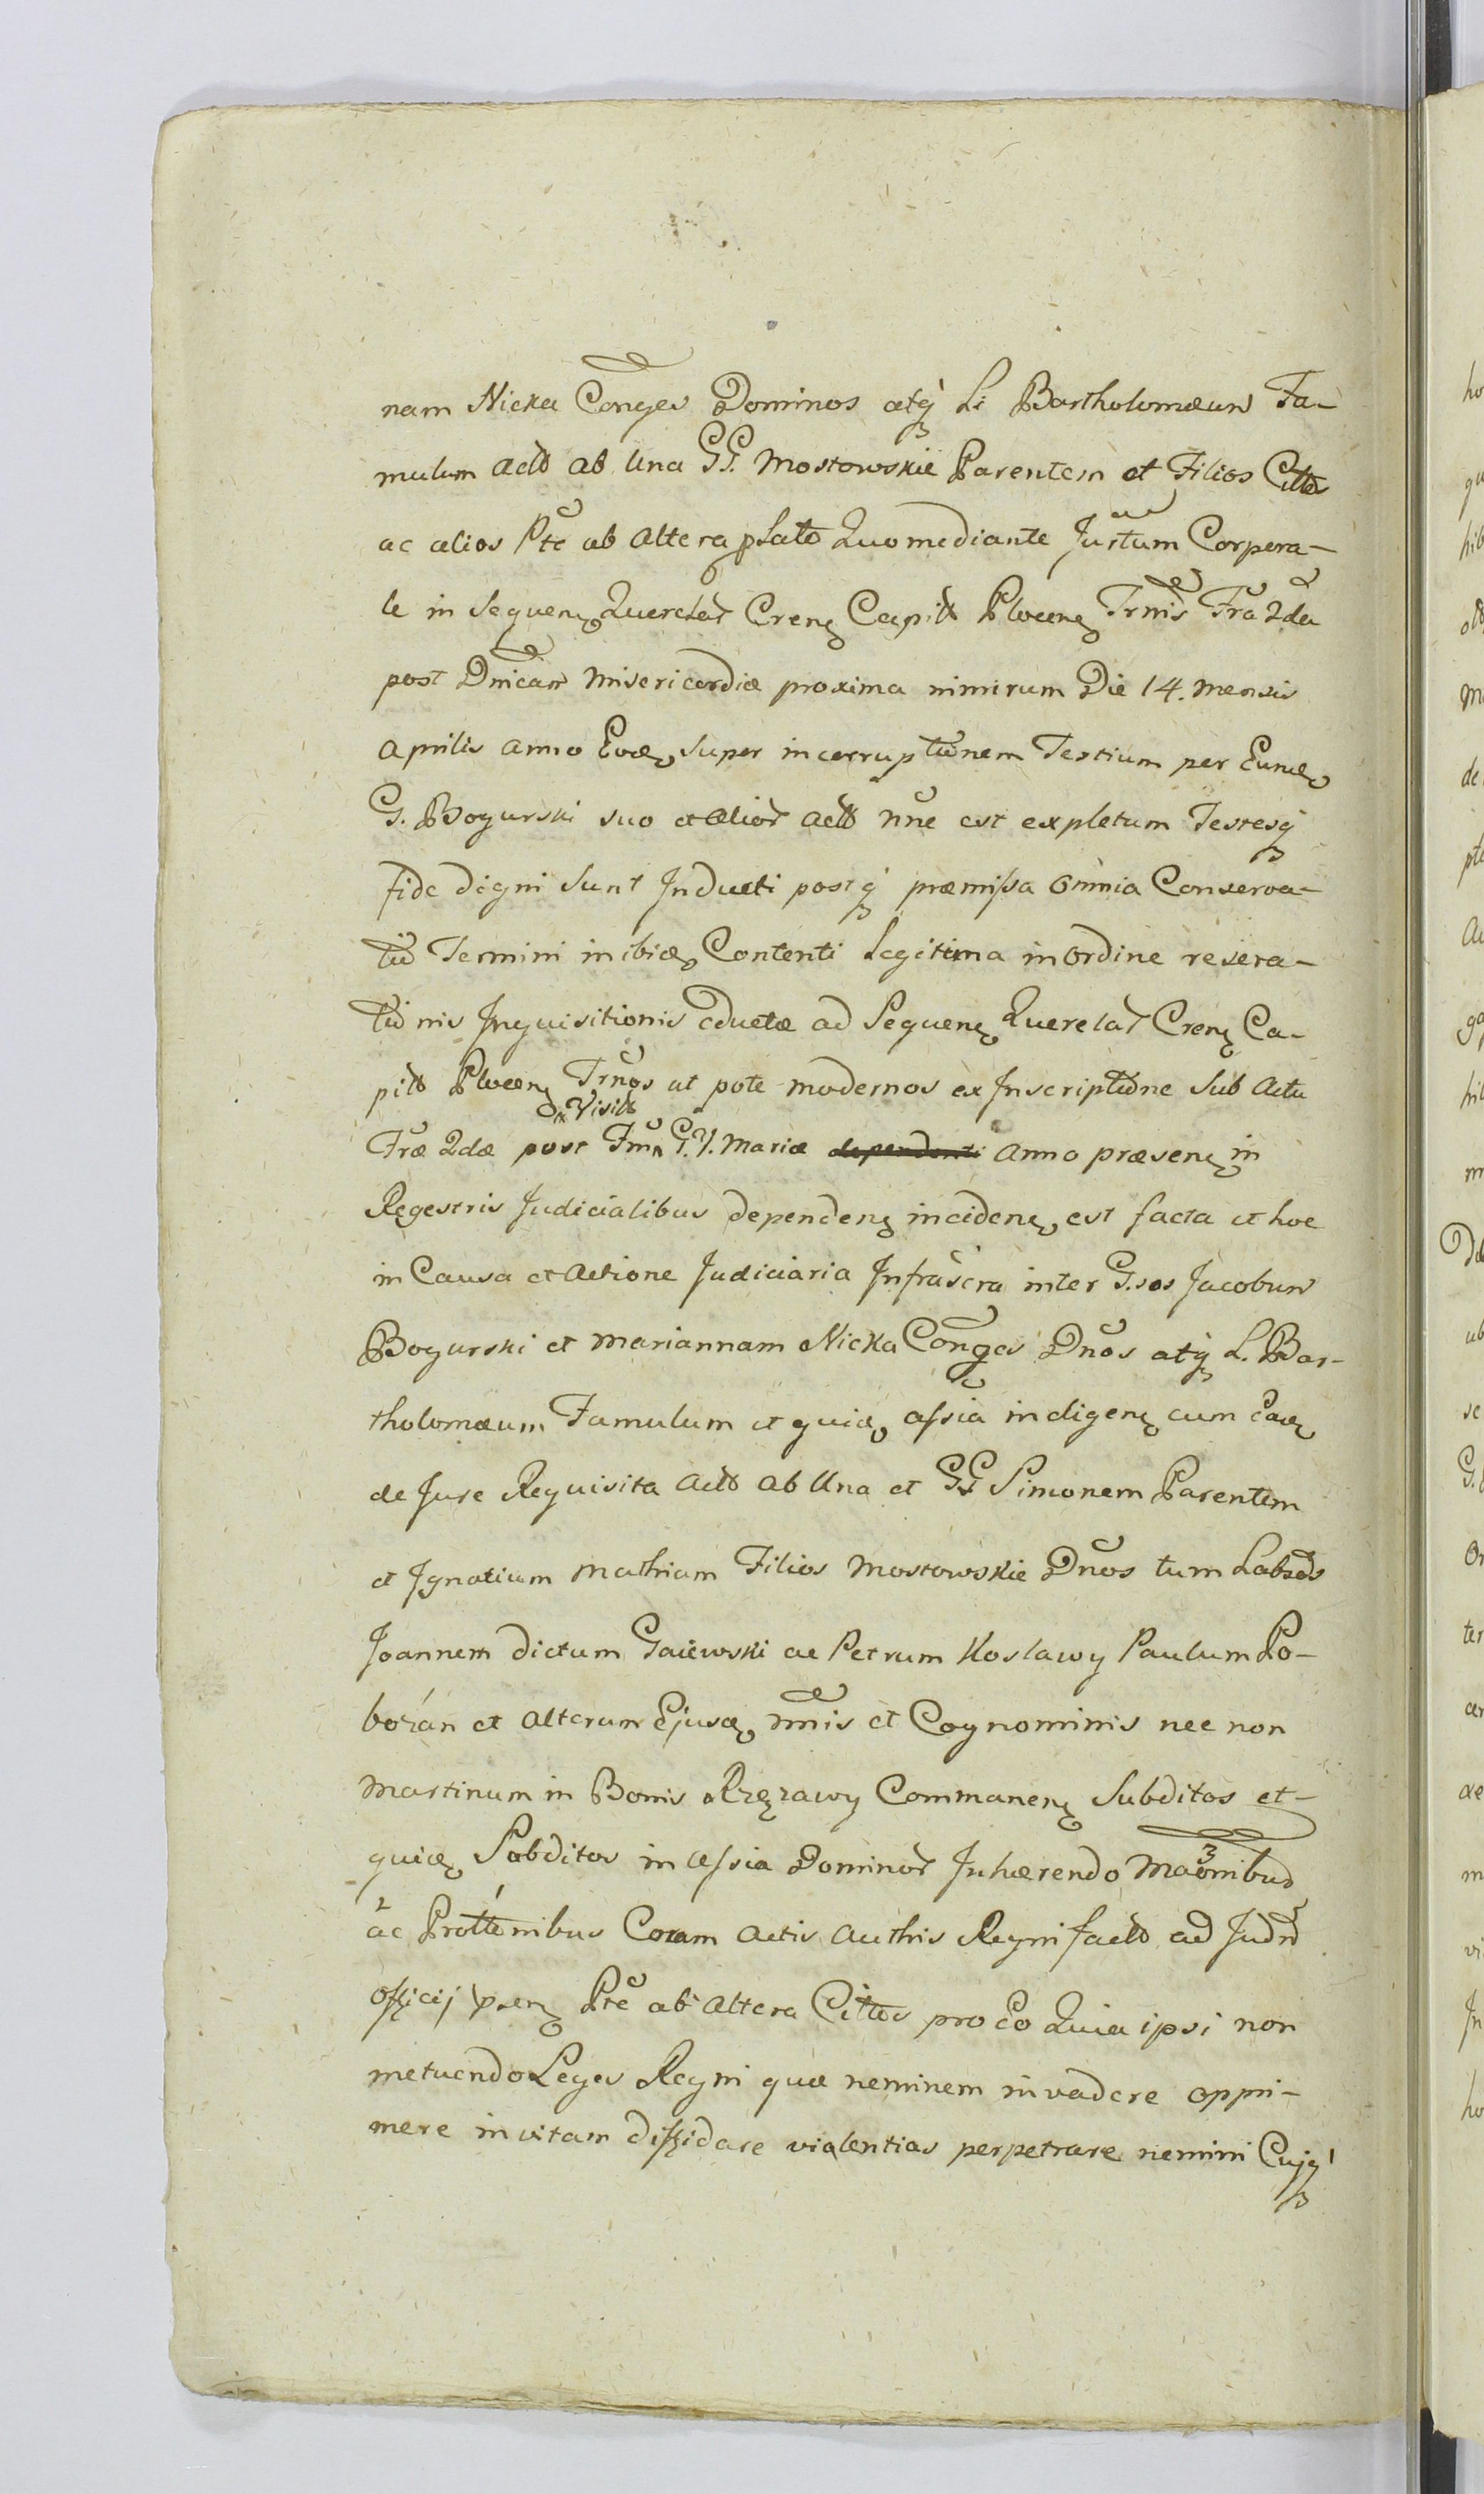 nam Nicka Conges Dominos atq̀ L. Bartholomæum Fa-
mulum actt ab Una GG. Mostowskie Parentem et Filios Citto
ac alios Pte ab altera plato Quo mediante Jurtum Corpora-
le in Sequen Querelar Cren Capitt Plocen Trnis Fra 2da
post Dnicam Misericordiæ proxima nimirum Die 14. Mensis
Aprilis Anno Eod Super incorruptionem Testium per Eund
G. Bogurski suo et alior actt nne est expletum Testesq̀
fide digni Sunt Inducti postq̀ præmissa omnia Conserva-
tio Termini inibid Contenti Legitima in ordine resera-
tionis Inquisitionis eductæ ad Sequen Querelar Cren Ca-
pitt Plocen Trnos ut pote modernos ex Inscriptione Sub Actu
Visitt
Fræ 2dæ post Fm G. V. Mariæ dependenti Anno præsen in
Regestris Judicialibus dependen inciden est facta et hoc
in Causa et Actione Judiciaria Infrascra inter G.sos Jacobum
Bogurski et Mariannam Nicka Conges Dnos atq̀ L. Bar-
tholomæum Famulum et quid assia indigen cum ead
de Jure Requisita actt ab Una et GG Simonem Parentem
et Ignatium Mathiam Filios Mostowskie Dnos tum Labsos
Joannem dictum Gaiewski ac Petrum Koslawy Paulum Po-
bożán et Alterum Ejusd nnis et Cognominis nec non
Martinum in Bonis Rzęzawy Commanen Subditos et-
quid Subditos in assia Dominor Inhærendo 3 Maonibus
2 ac 1 Prottonibus Coram Actis Authis Regni factt ad Judm
Officij psen Pte ab altera Cittos pro eo Quia ipsi non
metuendo Leges Regni quæ neminem invadere oppri-
mere in vitam diffidare violentias perpetrare nemini Cujq̀